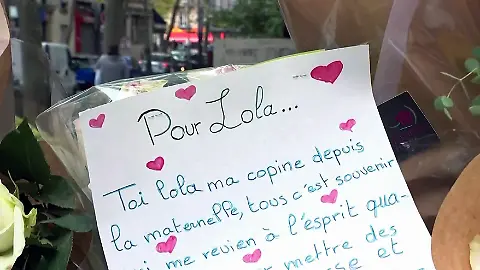 Pour Lola...
Toi lola ma copine depuis
la maternelle, tous c'est souvenir
qui me revien à l'ésprit qua-
mettre des
sse et